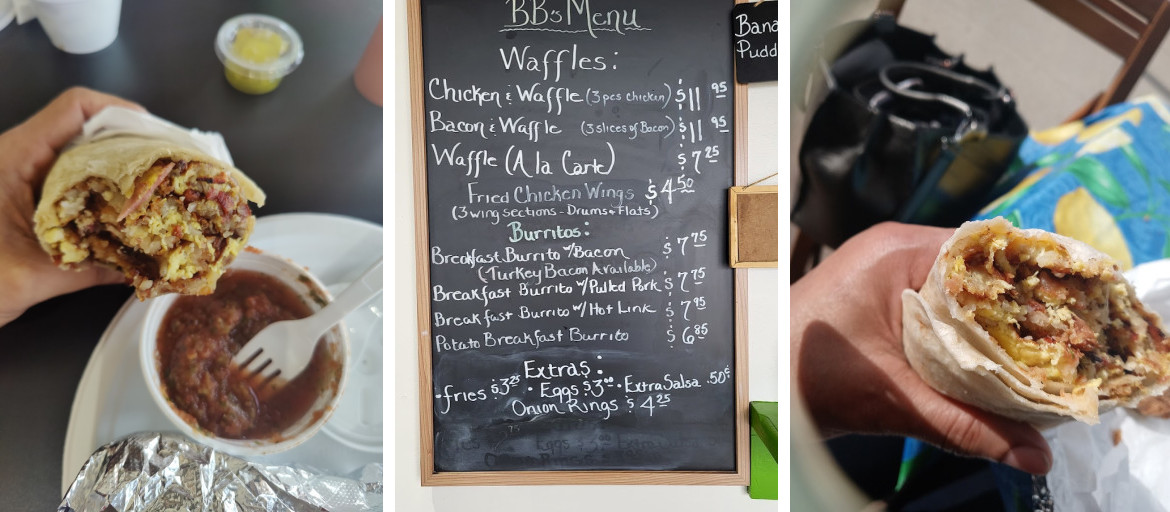 BB's Menu
Waffles:
Chicken & Waffle (3 pcs chicken) $11 95
Bacon & Waffle (3 slices of Bacon) $11 95
Waffle (A la Carte) $7 25
Fried Chicken Wings $4 50
(3 wing sections - Drums & Flats)
Burritos:
Breakfast Burrito w/Bacon $7 75
(Turkey Bacon Available)
Breakfast Burrito w/Pulled Pork $7 75
Breakfast Burrito w/Hot Link $7 95
Potato Breakfast Burrito $6 85
Extras:
•fries $3 25 • Eggs $3 00 • Extra Salsa .50¢
Onion Rings $4 25
Bana
Pudd